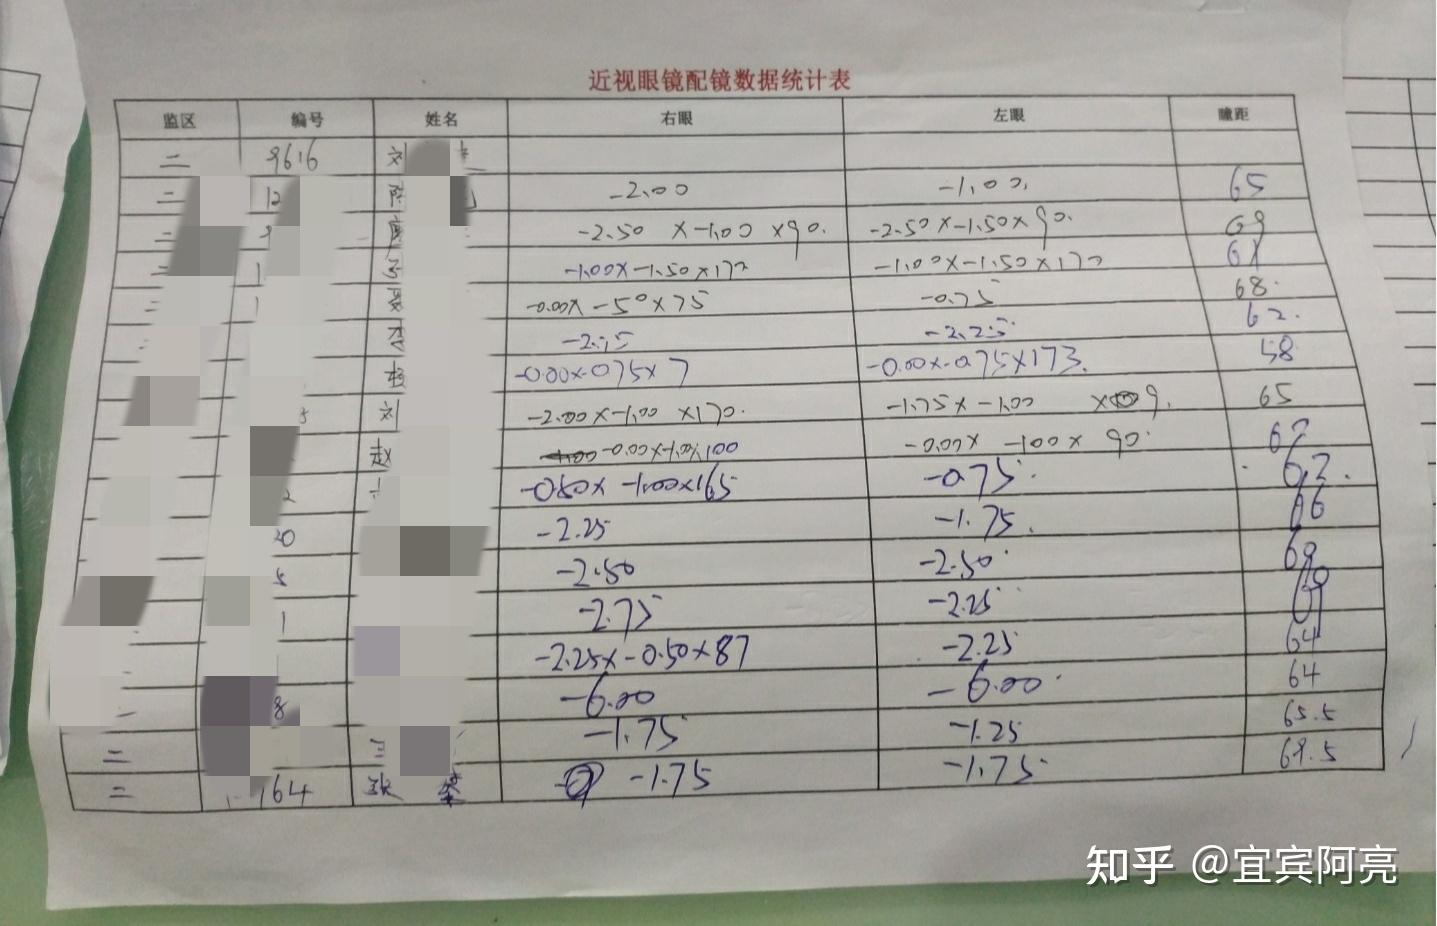 近视眼镜配镜数据统计表
监区 编号 姓名 右眼 左眼 瞳距
二 9616 刘
二 12 陈 -2.00 -1.00. 65
二 -2.50 x-1.00 x90. -2.50x-1.50x90. 69
-1.00x-1.50x170 -1.00x-1.50x170 61
-0.00x-50x75 -0.75 68.
李 -2.75 -2.25. 62.
杨 -0.00x-075x7 -0.00x-075x173. 58
5 刘 -2.00x-1.00 x170. -1.75x-1.00 9. 65
赵 -0.00x-1.00x100 -0.00x -100x 90. 62
2 -0.50x -1.00x165 -0.75. 62.
20 -2.25 -1.75. 66
5 -2.50 -2.50. 69
1 -2.75 -2.25 69
-2.25x-0.50x87 -2.25 64
8 -6.00 -6.00. 64
二 -1.75 -1.25 65.5
二 164 张 荣 -1.75 -1.75. 69.5
知乎 @宜宾阿亮